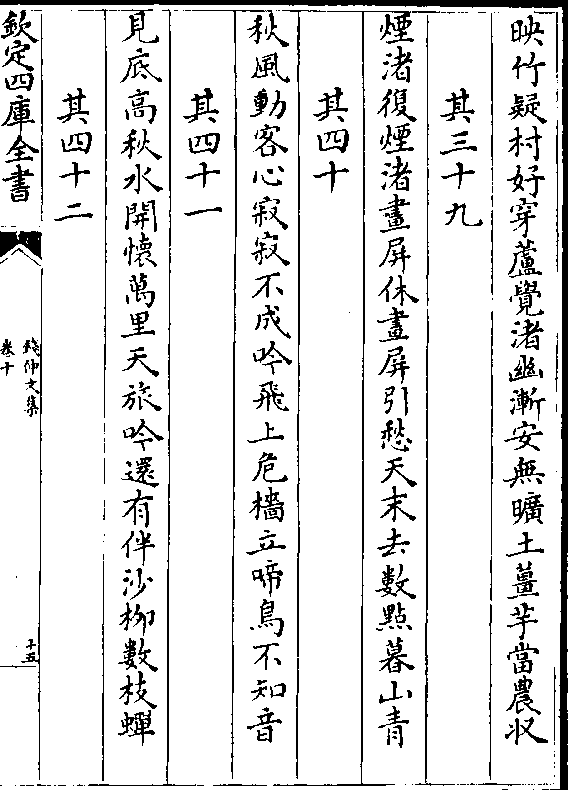 映竹疑村好穿蘆覺渚幽漸安無曠土薑芋當農收
其三十九
煙渚復煙渚畫屏休畫屏引愁天末去數點暮山青
其四十
秋風動客心寂寂不成吟飛上危檣立啼鳥不知音
其四十一
見底高秋水開懷萬里天旅吟還有伴沙柳數枝蟬
其四十二
欽定四庫全書
錢仲文集
卷十
十五